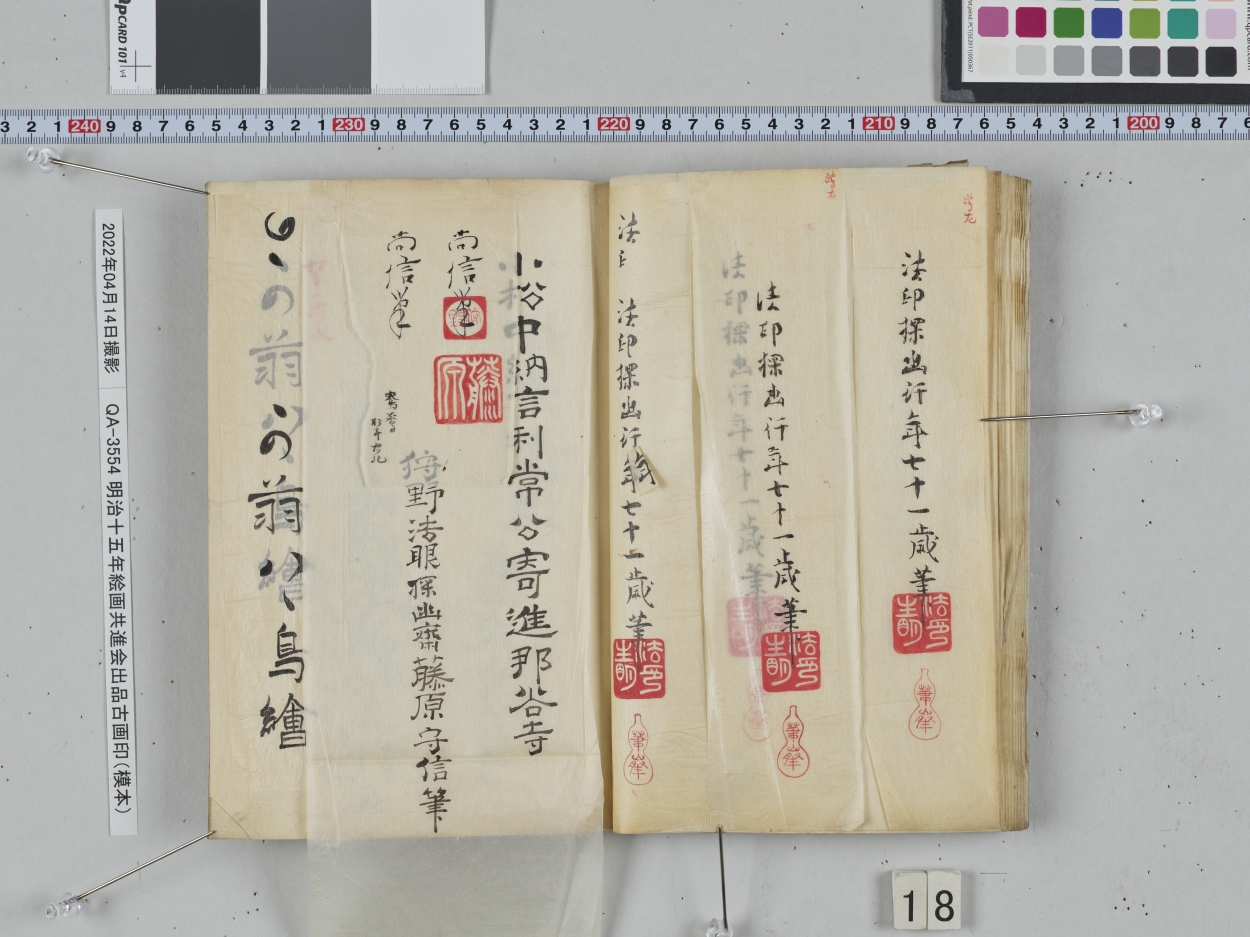 法印探幽行年七十一歳筆
法印探幽行年七十一歳筆
法印探幽行年七十一歳筆
法印
法印探幽行年七十一歳筆
小松中納言利常公寄進那谷寺
尚信筆
藤原
尚信筆
狩野法眼探幽齋藤原守信筆
の翁
の翁
鳥繪
2022年04月14日撮影 QA-3554 明治十五年絵画共進会出品古画印(模本)
18
CARD 101 v4
3 2 1 240 9 8 7 6 5 4 3 2 1 230 9 8 7 6 5 4 3 2 1 220 9 8 7 6 5 4 3 2 1 210 9 8 7 6 5 4 3 2 1 200 9 8 7 6